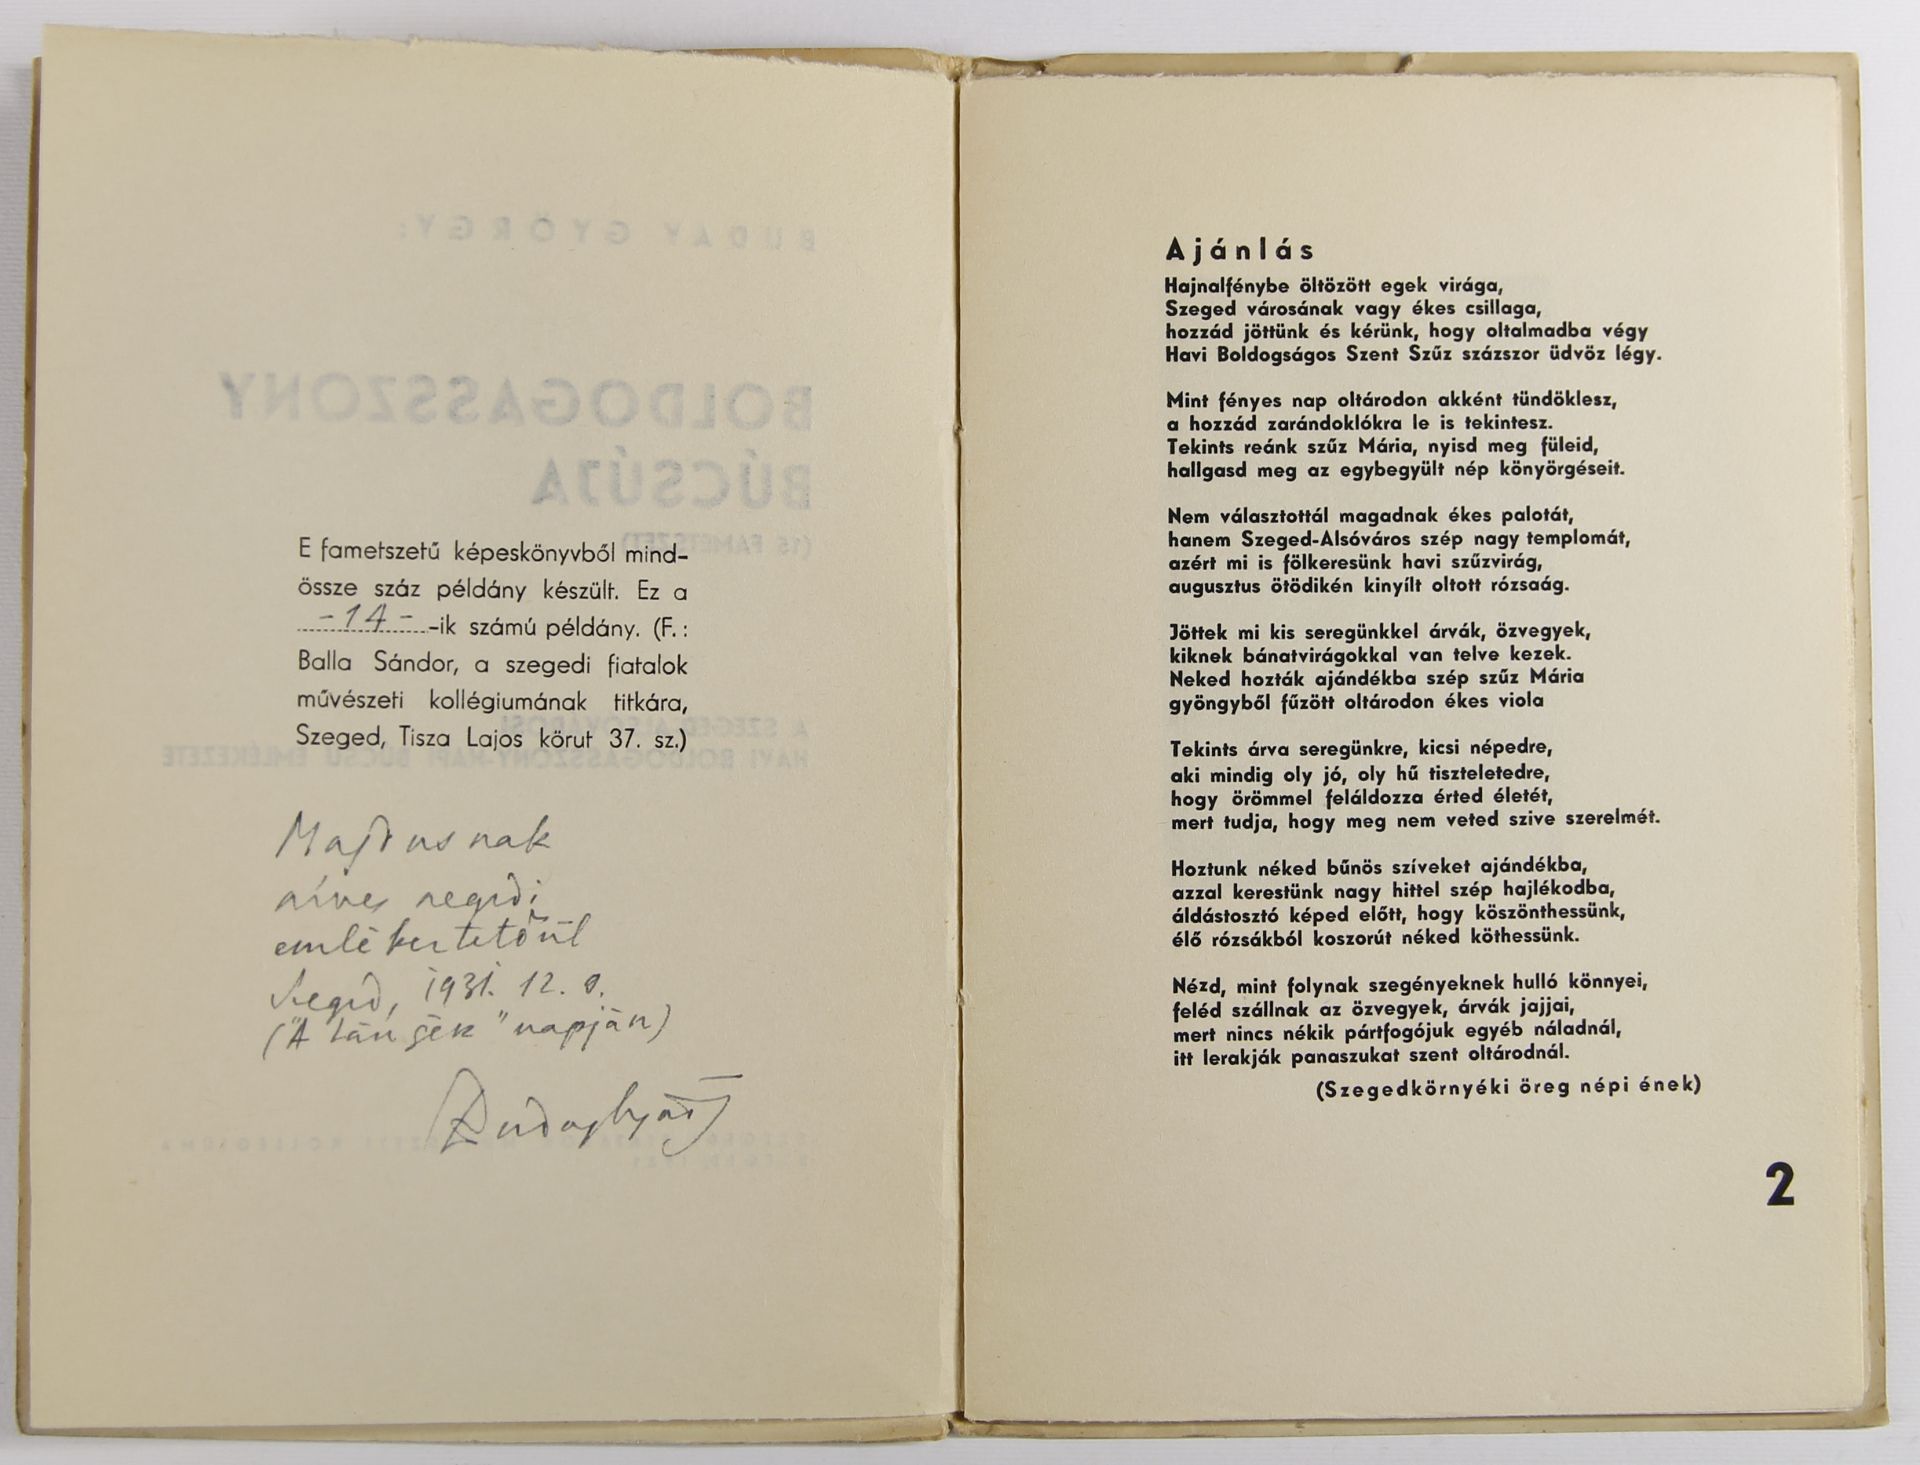 E fametszetű képeskönyvből mind-
össze száz példány készült. Ez a
-14- -ik számú példány. (F.:
Balla Sándor, a szegedi fiatalok
művészeti kollégiumának titkára,
Szeged, Tisza Lajos körut 37. sz.)
emlékeztetőül
Szeged, 1931. 12.
napján)
Ajánlás
Hajnalfénybe öltözött egek virága,
Szeged városának vagy ékes csillaga,
hozzád jöttünk és kérünk, hogy oltalmadba végy
Havi Boldogságos Szent Szűz százszor üdvöz légy.
Mint fényes nap oltárodon akként tündöklesz,
a hozzád zarándoklókra le is tekintesz.
Tekints reánk szűz Mária, nyisd meg füleid,
hallgasd meg az egybegyült nép könyörgéseit.
Nem választottál magadnak ékes palotát,
hanem Szeged-Alsóváros szép nagy templomát,
azért mi is fölkeresünk havi szűzvirág,
augusztus ötödikén kinyílt oltott rózsaág.
Jöttek mi kis seregünkkel árvák, özvegyek,
kiknek bánatvirágokkal van telve kezek.
Neked hozták ajándékba szép szűz Mária
gyöngyből fűzött oltárodon ékes viola
Tekints árva seregünkre, kicsi népedre,
aki mindig oly jó, oly hű tiszteletedre,
hogy örömmel feláldozza érted életét,
mert tudja, hogy meg nem veted szive szerelmét.
Hoztunk néked bűnös szíveket ajándékba,
azzal kerestünk nagy hittel szép hajlékodba,
áldástosztó képed előtt, hogy köszönthessünk,
élő rózsákból koszorút néked köthessünk.
Nézd, mint folynak szegényeknek hulló könnyei,
feléd szállnak az özvegyek, árvák jajjai,
mert nincs nékik pártfogójuk egyéb náladnál,
itt lerakják panaszukat szent oltárodnál.
(Szegedkörnyéki öreg népi ének)
2